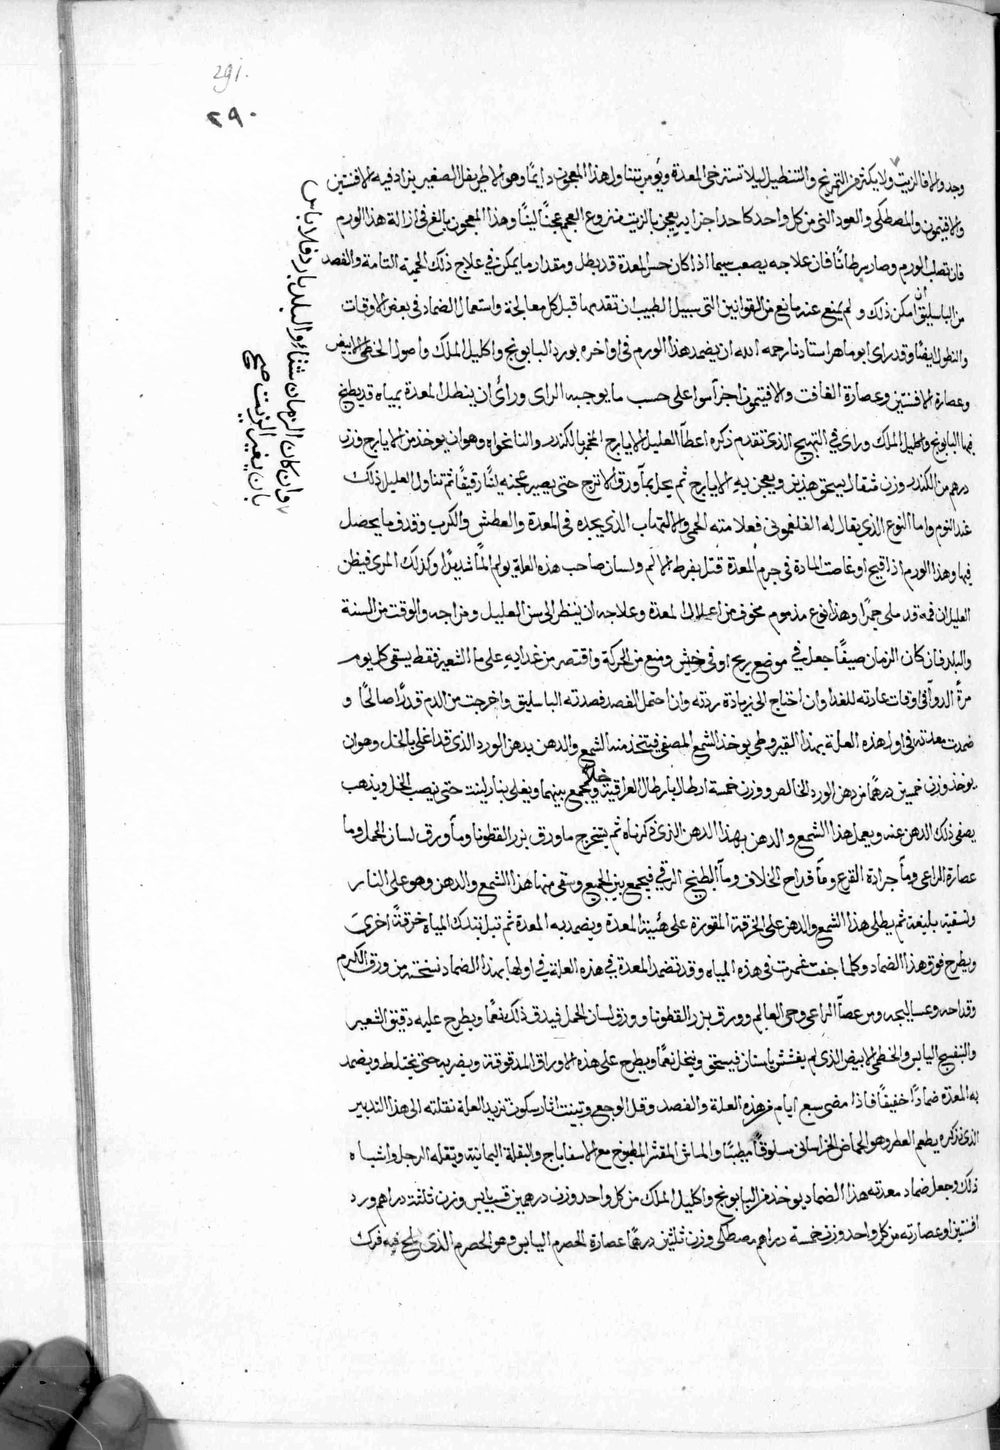 291.
٢٩٠
وجد والا فالزيت ولا يكثر من التمريخ والتنطيل ليلا تسترخى المعدة ويومر بتناول هذا المعجون دايمًا وهو الاطريفل الصغير يزاد فيه الافسنتين
والافتيمون والمصطكى والعود التى من كل واحد كاحد اجزايه يعجن بالزيت منزوع العجم عجنًا لينًا وهذا المعجون بالغ فى ازالة هذا الورم
فان تصلب الورم وصار سرطانًا فان علاجه يصعب سيما اذا كان حس المعدة قد بطل ومقدار ما يمكن فى علاج ذلك الحمية التامة والفصد
من الباسليق ان امكن ذلك ولم يمنع عنه مانع من القوانين التى سبيل الطبيب ان تقدمها قبل كل معالجة واستعمال الضماد فى بعض الاوقات
والنطول ايضًا وقد راى ابو ماهر استادنا رحمه الله ان يضمد هذا الورم فى اواخره بورد البابونج واكليل الملك واصول الخطمى الابيض
وعصارة الافسنتين وعصارة الغافت والافتيمون اجزآ سوا على حسب ما يوجبه الراى وراى ان ينطل المعدة بمياه قد يطبخ
فيها البابونج واكليل الملك وراى فى التهيج الذى تقدم ذكره اعطآ العليل الايارج المخمر بالكندر والنانخواه وهو ان يوخذ من الايارج وزن
درهم من الكندر وزن مثقال يسحق هذين ويعجن به الايارج ثم يحل بمآ ورق الاترج حتى يصير عجنه لثًا رقيقًا ثم تناول العليل ذلك
عند النوم واما النوع الذى يقال له الفلغمونى فعلامته الحمى والالتهاب الذى يجده فى المعدة والعطش والكرب وقذف ما يحصل
فيها وهذا الورم اذا قيح او غاصت المادة فى جرم المعدة قتل بفرط الالم ولسان صاحب هذه العلة يولم المًا شديدًا وكذلك المرى فيظن
العليل ان فمه قد ملى جمرًا وهذا نوع مذموم مخوف من اعلال المعدة وعلاجه ان ينظر الى سن العليل ومزاجه والوقت من السنة
والبلد فان كان الزمان صيفًا جعل فى موضع ريح او فى خيش ومنع من الحركة واقتصر من غذايه على ما الشعير فقط يسقى كل يوم
مرةً الدوآ فى اوقات عادته للغدا وان احتاج الى زيادة زدته وان احتمل الفصد فصدته الباسليق واخرجت من الدم قدرًا صالحًا و
ضمدت معدته فى اول هذه العلة بهذا القيروطى يوخذ الشمع المصفى فيتخذ منه الشمع والدهن بدهن الورد الذى قد اغلى بالخل وهو ان
يوخذ وزن خمسين درهمًا من دهن الورد الخالص ووزن خمسة ارطال بارطال العراقية خلاً ويجمع بينهما ويغلى بنار لينة حتى نصب الخل ويذهب
يصفى ذلك الدهن عنه ويعمل هذا الشمع والدهن بهذا الدهن الذى ذكرناه ثم يتخرج ما ورق بزر القطونا ومآ ورق لسان الحمل وما
عصارة الراعى ومآ جرادة القرع ومآ قداح الخلاف ومآ البطيخ الرقى فيجمع بين الجميع وتسقى منها هذا الشمع والدهن وهو على النار
وتسقيه بليغه ثم يطلى هذا الشمع والدهن على الخرقة المقورة على هيئة المعدة ويضمد به المعدة ثم تبل بتلك المياه خرقةً اخرى
ويطرح فوق هذا الضماد وكلما جفت غمرت فى هذه المياه وقد تضمد المعدة فى هذه العلة فى اولها بهذا الضماد نسخته من ورق الكرم
وقداحه وعساليجه ومن عصآ الراعى وحى العالم وورق بزر القطونا وورق لسان الحمل فيدق ذلك نعمًا ويطرح عليه دقيق الشعير
والبنفسج اليابس والخطمى الابيض الذى لم يغشش باسنان فيسحق وينخل نعمًا ويطرح على هذه الاوراق المدقوقة ويضرب حتى تختلط ويضمد
به المعدة ضمادًا خفيفًا فاذا مضى سبع ايام من هذه العلة والفصد وقل الوجع وتبينت اثار سكون تزيد العلة نقلته الى هذا التدبير
الذى نذكره يطعم العطر وهو الحماض الخراسانى مسلوقًا مطببًا والماش المقشر المطبوخ مع الاسفاناج والبقلة اليمانية وبقلة الرجل واشباه
ذلك وجعل ضماد معدته هذا الضماد يوخذ من البابونج واكليل الملك من كل واحد وزن درهمين قسب يابس وزن ثلثة دراهم ورد
افسنتين او عصارته من كل واحد وزن خمسة دراهم مصطكى وزن ثلثين درهمًا عصارة الحصرم اليابس وهو الحصرم الذى ملح فيه فرك
وان كان الزمان شتاء والبلد بارد فلا باس
بان يغير الزيت صح